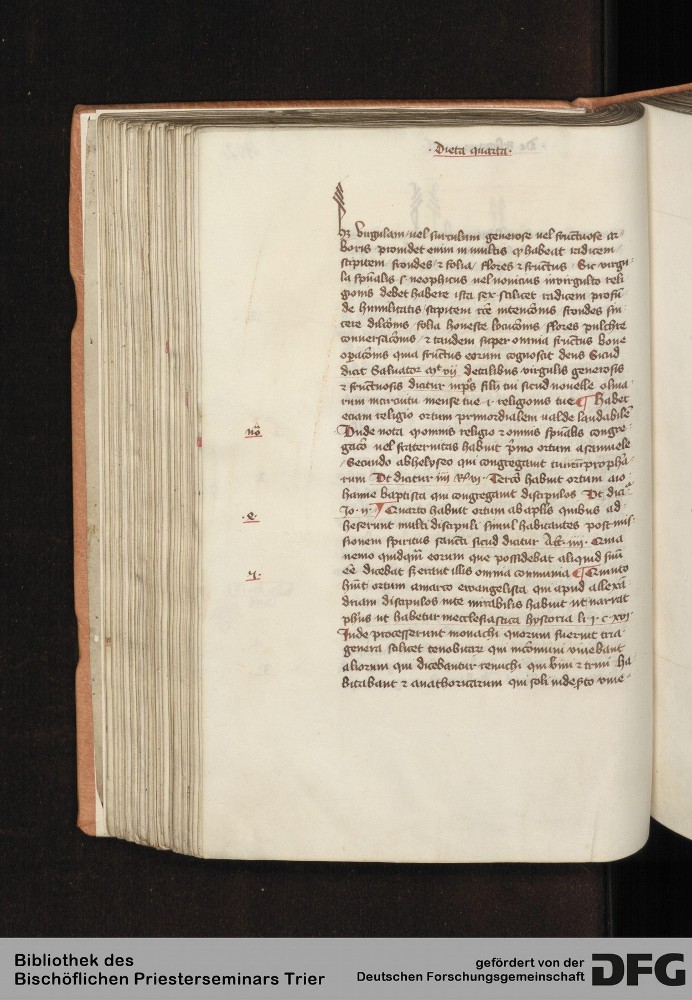 · Dieta quarta ·
hꝫ virgulam / uel surculum generose uel fructuose ar
boris prouidet enim in multis ꝙ habeat radicem
stipitem frondes ⁊ folia / flores ⁊ fructus · Sic virgu
la sp̄ualis s· neophicus uel nouicius in virgulto reli
gionis debet habere ista sex scilicet radicem profū
de humilitatis stipitem intencōnis frondes sin
cere folia honeste flores pulchre
conuersacōnis / ⁊ tandem super omnia fructus bone
oꝑacōnis quia fructus eorum cognoscit deus Sicud
dicit Saluator mͭ vij de talibus virgulis generosis
⁊ fructuosis dicitur in ps̄ filij tui sicud nouelle oliua
rum in circuitu mense tue ·i· religionis tue ¶ Habet
eciam religio ortum primordialem ualde laudabilē
Vnde nota omnis religio ⁊ omnis sp̄ualis congre
nō
gacō uel fraternitas habuit pͥmo ortum a samuele
Secundo ab helyseo qui congregauit prophā
rum Vt dicitur iiij Rͫ vi · Tercō habuit ortum a io
hanne baptista qui congregauit discipulos Vt diciͭ
Jo · ij · ¶ Quarto habuit ortum ab apl̄is quibus ad
· e ·
heserunt multi discipuli simul habitantes post mis
sionem spiritus sancti sicud dicitur Act · iiij · Quia
nemo quidquā eorum que possidebat aliquid suū
eē dicebat sꝫ erant illis omnia communia ¶ Quinto
hūit ortum a marco ewangelista qui apud allexā
driam discipulos mirabilis habuit ut narrat
ph̄us ut habetur in ecclesiastica hystoria li · j · c · xvi ·
Jnde processerunt monachi quorum fuerunt tria
genera scilicet cenobitarꝫ qui in cōmuni viuebant
aliorum qui dicebantur renuchi qui bini ⁊ trini ha
bitabant ⁊ anathoritarum qui soli in deserto viue
Bibliothek des
Bischöflichen Priesterseminars Trier
gefördert von der
Deutschen Forschungsgemeinschaft
DFG